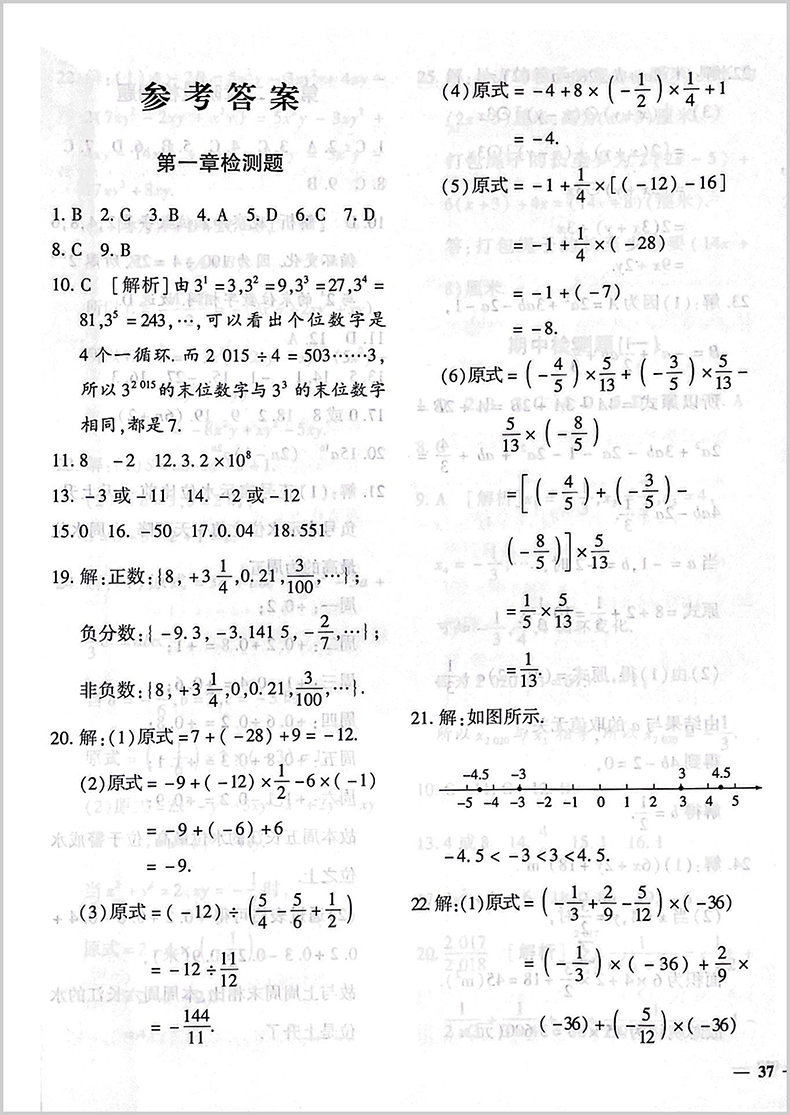 参考答案
第一章检测题
1. B 2. C 3. B 4. A 5. D 6. C 7. D
8. C 9. B
10. C [解析]由3¹=3,3²=9,3³=27,3⁴=
81,3⁵=243,…,可以看出个位数字是
4个一循环.而2 015÷4=503……3,
所以3²⁰¹⁵的末位数字与3³的末位数字
相同,都是7.
11. 8 -2 12. 3.2×10⁸
13. -3或-11 14. -2或-12
15. 0 16. -50 17. 0.04 18. 551
19. 解:正数:{8,+3 1/4,0.21,3/100,…};
负分数:{-9.3,-3.141 5,-2/7,…};
非负数:{8,+3 1/4,0,0.21,3/100,…}.
20. 解:(1)原式=7+(-28)+9=-12.
(2)原式=-9+(-12)×1/2-6×(-1)
=-9+(-6)+6
=-9.
(3)原式=(-12)÷(5/4-5/6+1/2)
=-12÷11/12
=-144/11.
(4)原式=-4+8×(-1/2)×1/4+1
=-4.
(5)原式=-1+1/4×[(-12)-16]
=-1+1/4×(-28)
=-1+(-7)
=-8.
(6)原式=(-4/5)×5/13+(-3/5)×5/13-
5/13×(-8/5)
=[(-4/5)+(-3/5)-
(-8/5)]×5/13
=1/5×5/13
=1/13.
21. 解:如图所示.
-4.5 -3 3 4.5
-5 -4 -3 -2 -1 0 1 2 3 4 5
-4.5<-3<3<4.5.
22. 解:(1)原式=(-1/3+2/9-5/12)×(-36)
=(-1/3)×(-36)+2/9×
(-36)+(-5/12)×(-36)
— 37 —